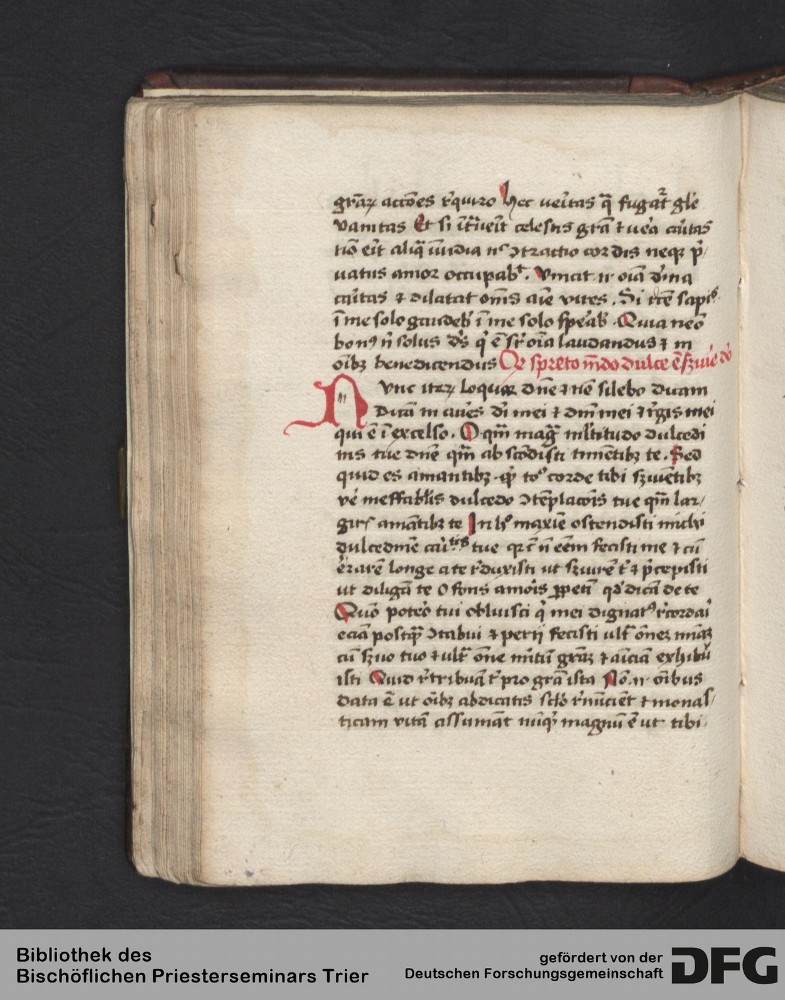 grãꝝ accões r̃quiro Hec ueritas q̃ fugat᷑ gl̃e
vanitas Et si ĩt̃ueĩt celestis grã ⁊ uẽa cãitas
nõ eĩt aliq̃ ĩuidia nͨ ꝯtractio cordis neqꝫ p̃
uatus amor occupabͭ. Vincit .n. oĩa diĩna
cãitas ⁊ dilatat oms aĩe vires. Si r̃cẽ sapiˢ
ĩ me solo gaudebˢ ĩ me solo spẽabˢ Quia nẽo
bonꝰ ñ solus dˢs qͥ ẽ suꝑ oĩa laudandus ⁊ in
oĩbꝫ benedicendus Qꝫ spreto mũdo dulce ẽ ẜuĩe dẽo
Nunc iteꝝ loquar dñe ⁊ nõ silebo dicam
Dicã in auĩbꝫ dĩ mei ⁊ dñi mei ⁊ r̃gis mei
qui ẽ ĩ excelso. O qm̃ mag̃ ml̃titudo dulcedi
nis tue dñe qm̃ abscõdisti timẽtibꝫ te. Sed
quid es amantibꝫ. qͥd toᵒ corde tibi ẜuiẽtibꝫ
vẽ ineffabĩlis dulcedo ꝯtẽplacõis tue qm̃ lar
giris amãtibꝫ te In hͦ maxĩe ostendisti michi
dulcedinẽ cãitᵗⁱˢ tue qꝛ cũ ñ eẽm fecisti me ⁊ cũ
ẽrarẽ longe a te r̃duxisti ut ẜuirẽ tͥ ⁊ p̃cepisti
ut diligã te O fons amõis ꝑpetũ qͥd dicã de te
Quõ poterõ tui obliuisci qͥ mei dignatꝰ r̃cordaĩ
eciã postqᷓ ꝯtabui ⁊ perij fecisti ultᷓ omnẽ mĩaꝫ
cũ ẜuo tuo ⁊ ultᷓ omne meritũ grãꝫ ⁊ amiciciã exhibu
isti Quid r̃tribuã tͥ pro grã ista Nõ .n. oĩbus
data ẽ ut oĩbꝫ abdicatis sclõ r̃nũcient ⁊ monas
ticam vitã assumãt nũqͥd magnũ ẽ ut tibi
Bibliothek des
Bischöflichen Priesterseminars Trier
gefördert von der
Deutschen Forschungsgemeinschaft
DFG